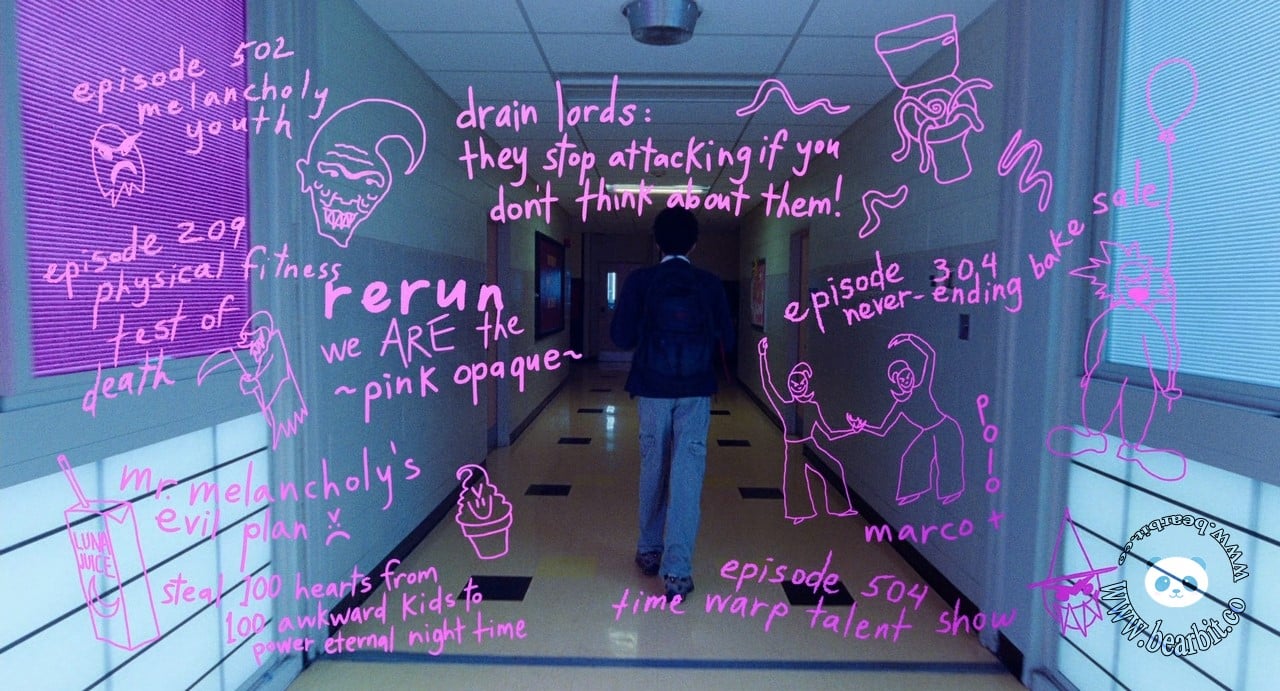 episode 502
melancholy
youth
drain lords:
they stop attacking if you
don't think about them!
episode 209
physical fitness
test of
death
rerun
we ARE the
~pink opaque~
episode 304
never-ending bake sale
mr. melancholy's
evil plan
steal 100 hearts from
100 awkward kids to
power eternal night time
LUNA
JUICE
polo
marco +
episode 504
time warp talent show
www.bearbit.co
www.bearbit.co